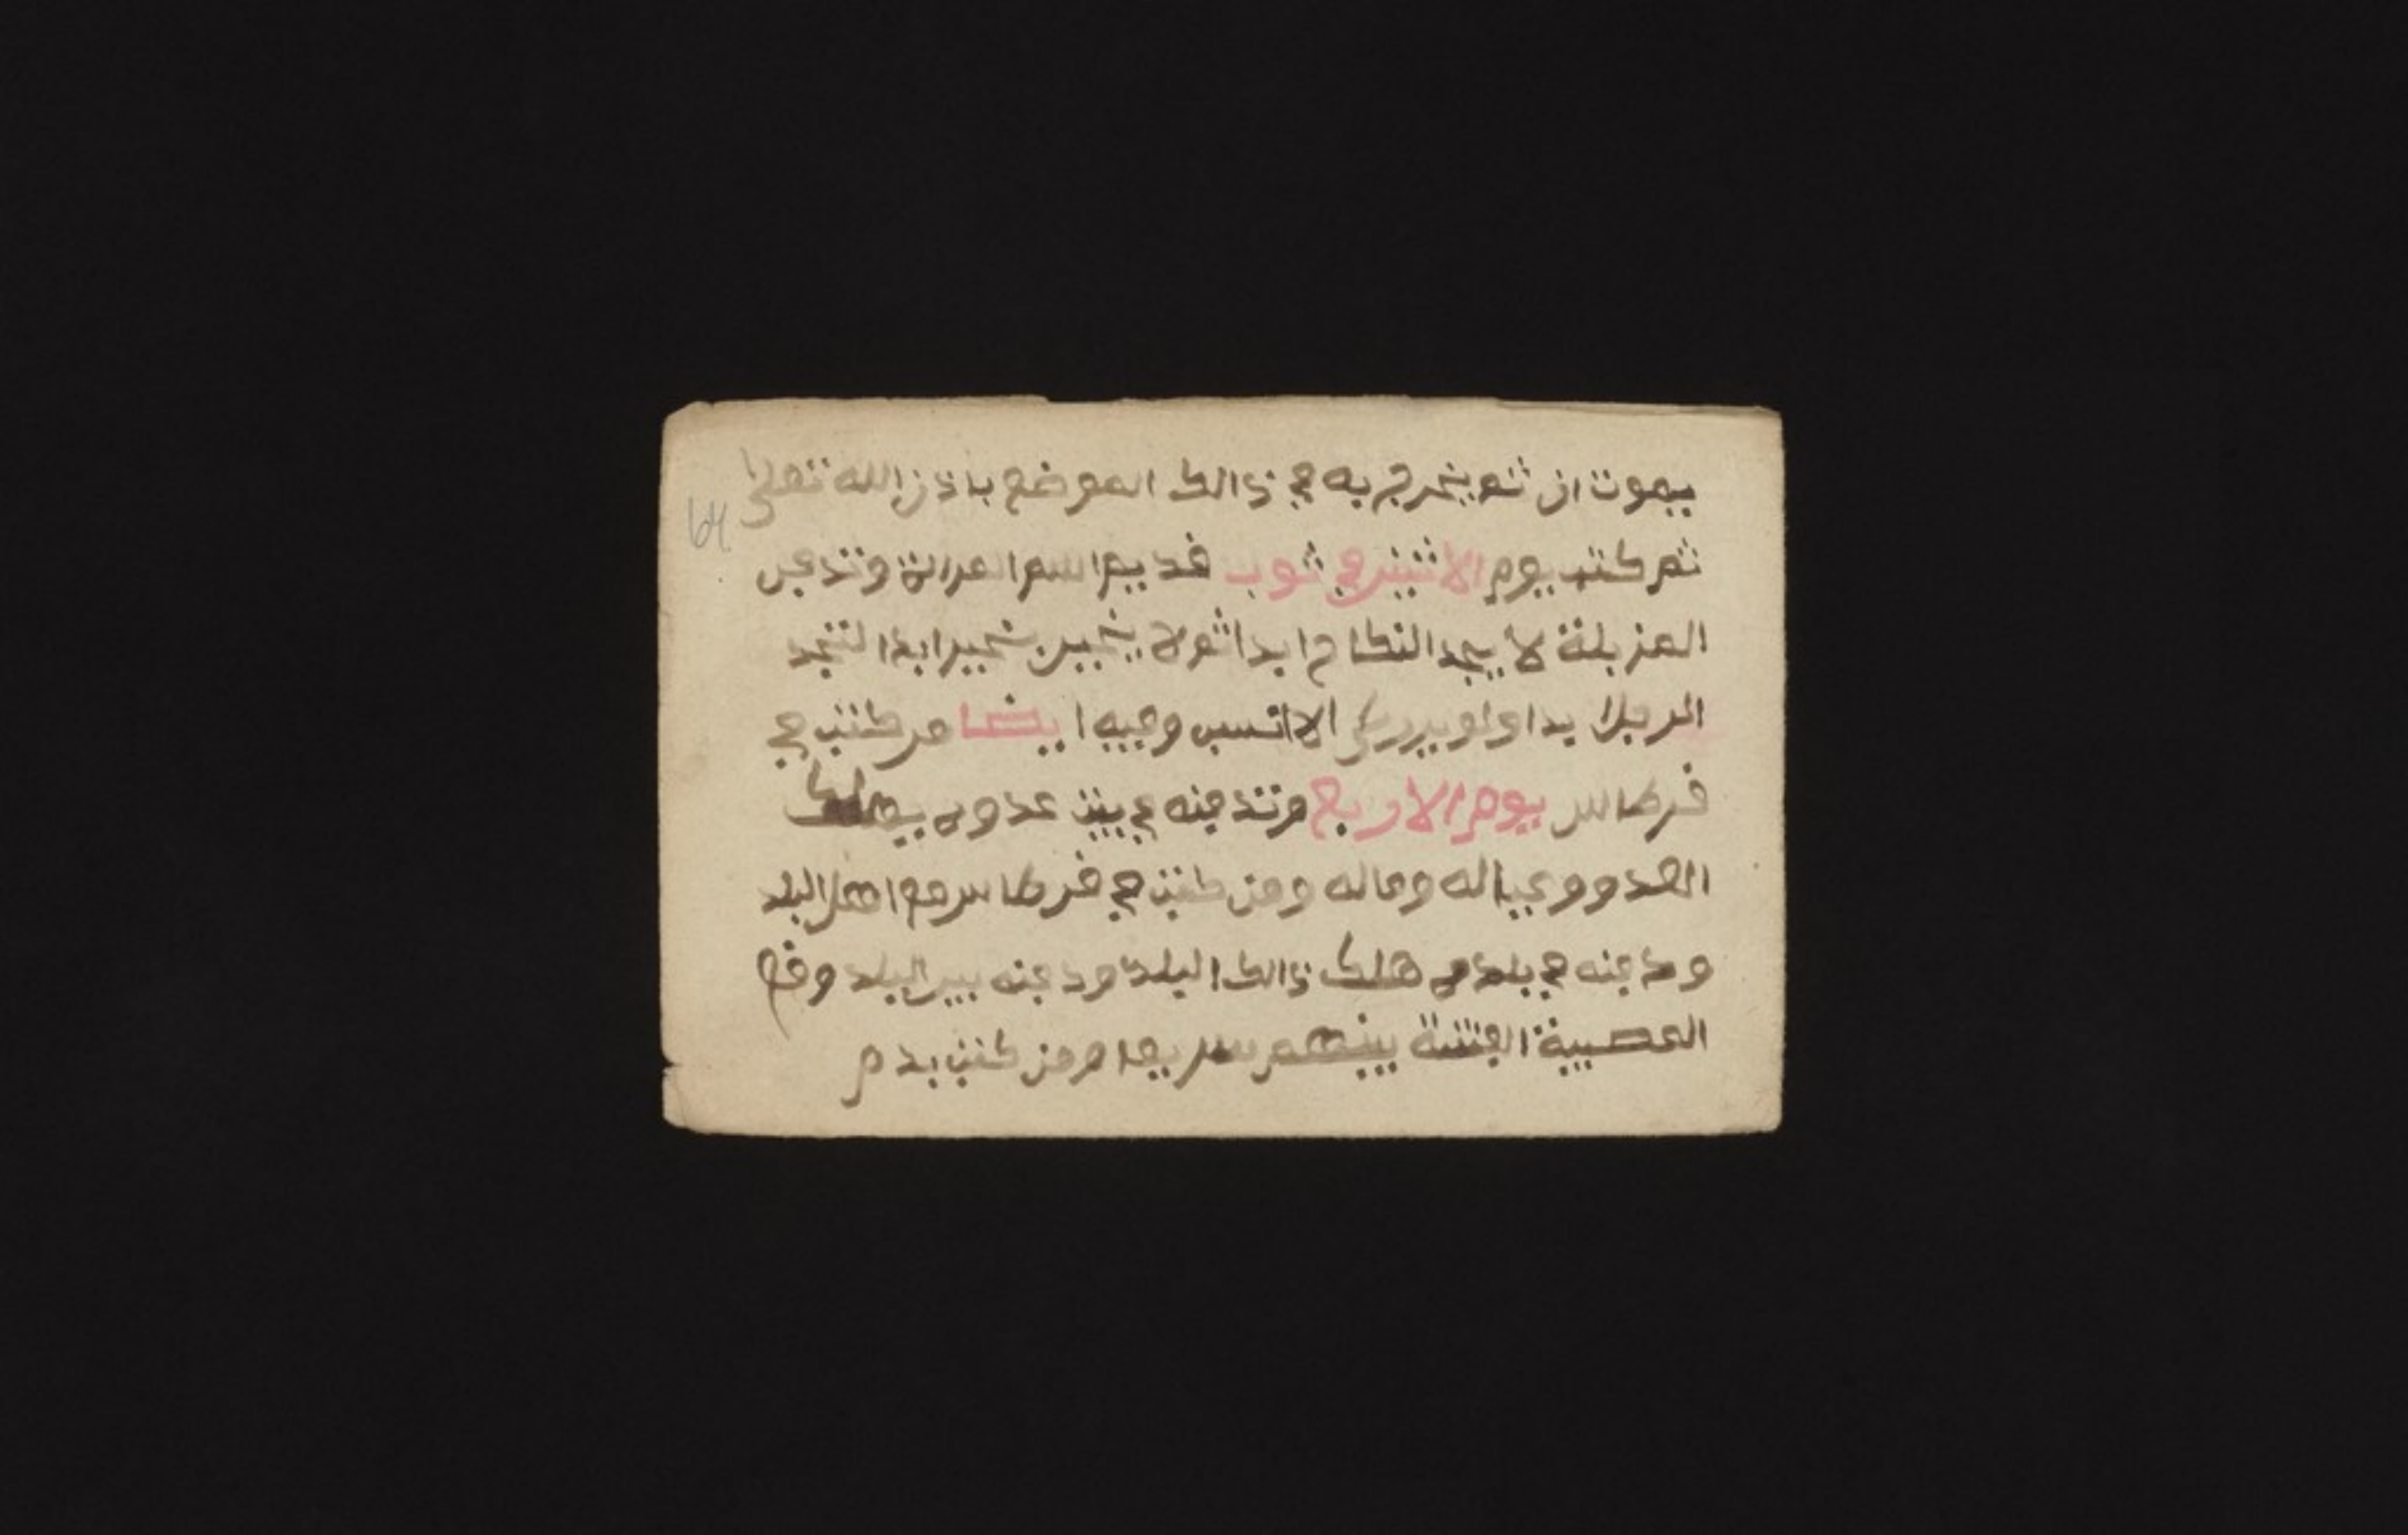 يموت ان ثم يخرج به في ذالك الموضع باذن الله تعلى
64
ثم كتب يوم الاثنين في ثوب قديم اسم المراة وتدفن
المزبلة لا يجد النكاح ابدا ثم لا يخير بخير ابدا لتجد
الرجل ابدا الانسى وفيه ايضا من كتب في
قرطاس يوم الاربع وتدفنه في بيت عدوه يهلك
العدو وعياله وماله ومن كتب في قرطاس مع اهل البلد
ودفنه في بلدهم هلك ذالك البلد ودفنه بين البلد وقع
المصيبة الفتنة بينهم سريعا ومن كتب بدم